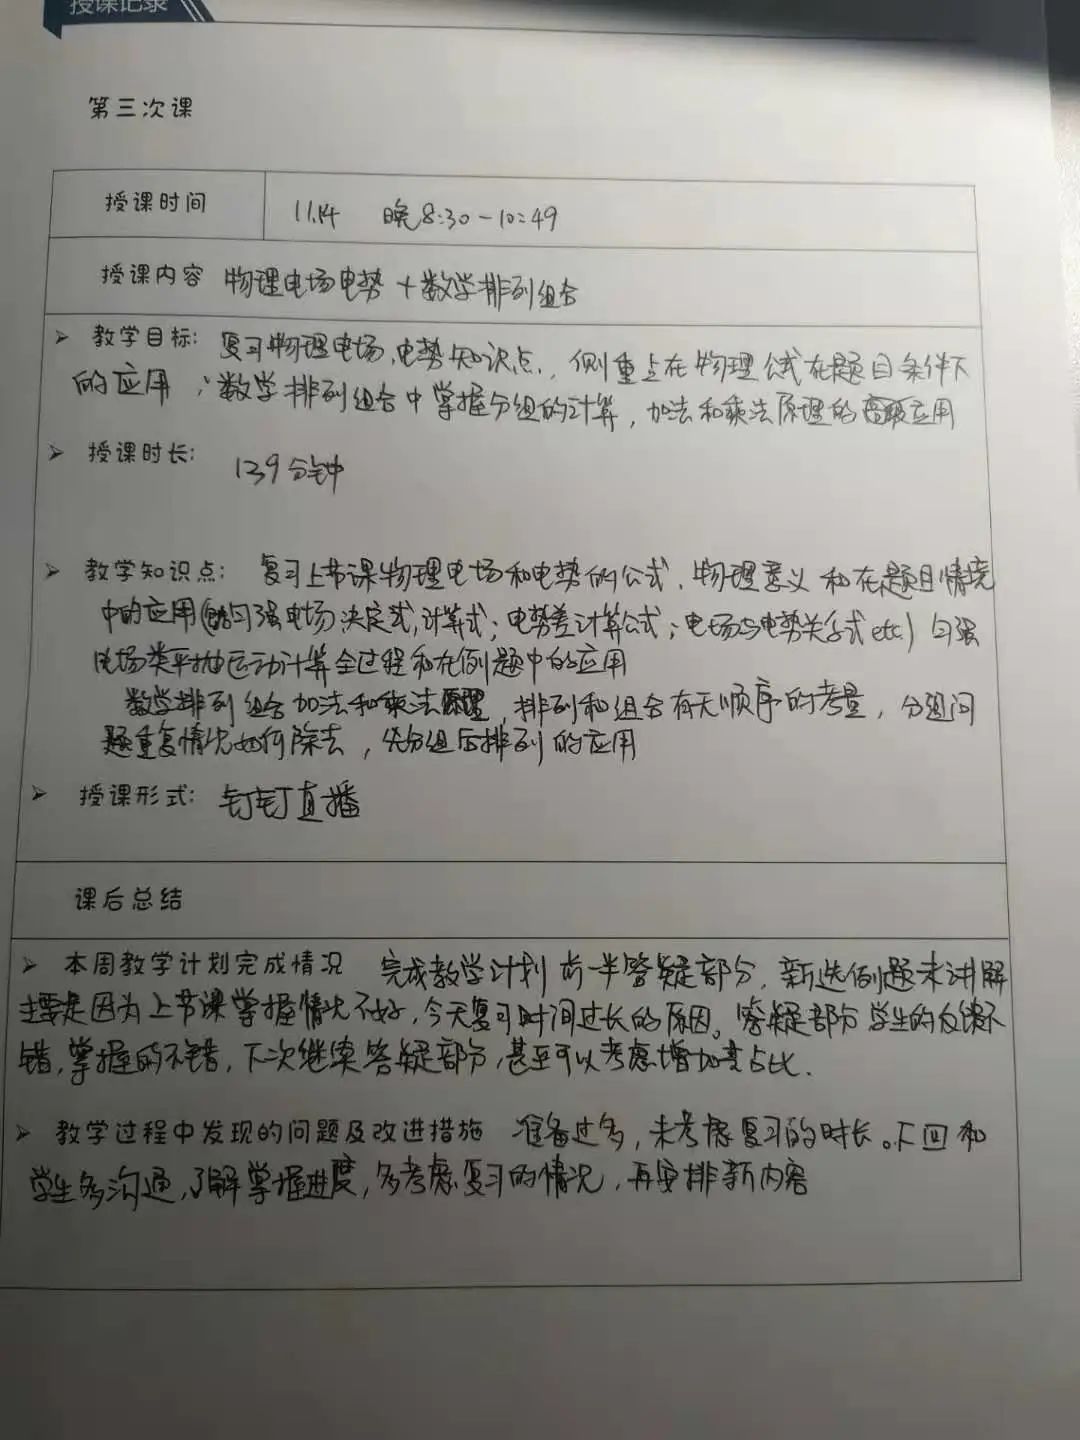 授课记录
第三次课
授课时间 11.14 晚8:30-10:49
授课内容 物理电场电势+数学排列组合
➢ 教学目标: 复习物理电场,电势知识点., 侧重点在物理公式在题目条件下
的应用 ;数学排列组合中掌握分组的计算, 加法和乘法原理的应用
➢ 授课时长: 139分钟
➢ 教学知识点: 复习上节课物理电场和电势的公式, 物理意义 和在题目情境
中的应用(匀强电场决定式,计算式; 电势差计算公式; 电场与电势关系式etc.) 匀强
电场类平抛运动计算全过程和在例题中的应用
数学排列组合加法和乘法原理, 排列和组合有无顺序的考量, 分组问
题重复情况如何除去, 先分组后排列的应用
➢ 授课形式: 钉钉直播
课后总结
➢ 本周教学计划完成情况 完成教学计划前一半答疑部分, 新选例题未讲解
主要是因为上节课掌握情况不好,今天复习时间过长的原因。答疑部分学生的反馈不
错,掌握的不错, 下次继续答疑部分,甚至可以考虑增加其占比.
➢ 教学过程中发现的问题及改进措施 准备过多, 未考虑复习的时长。下回和
学生多沟通,了解掌握进度,多考虑复习的情况, 再安排新内容